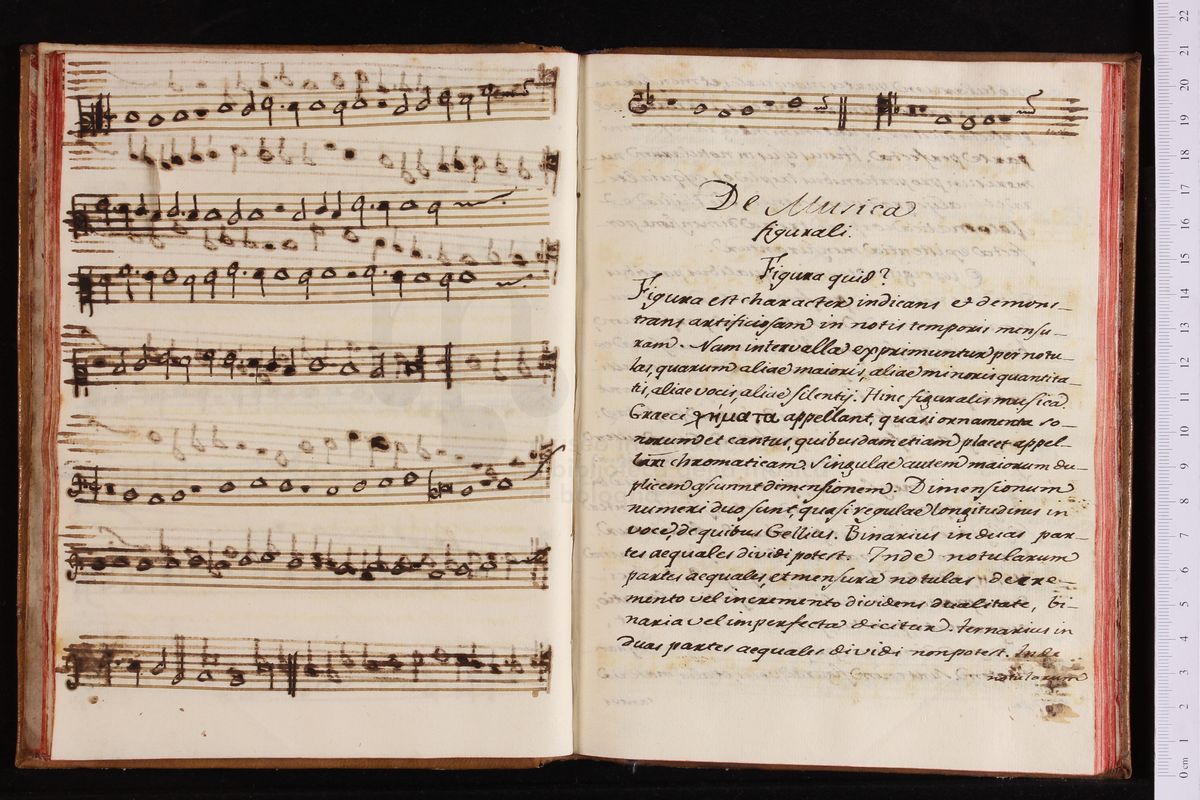 De Musica
figurali.
Figura quid?
Figura est character indicans et demons
trans artificiosam in notis temporis mensu-
ram. Nam intervalla exprimuntur per notu-
las, quarum aliae maioris, aliae minoris quantita-
tis, aliae vocis, aliae silentij. Hinc figuralis musica.
Graeci χηματα appellant, quasi ornamenta so-
norum et cantus quibusdam etiam placet appel-
lari chromaticam. Singulae autem maiorum du-
plicem dimensionem. Dimensionum
numeri duo sunt, quasi regulae longitudinis in
voce, de quibus Gellius. Binarius in duas par-
tes aequales dividi potest. Inde notularum
partes aequales, et mensura notulas decre-
mento vel incremento dividens dualitate, bi-
naria vel imperfecta dicitur. ternarius in
duas partes aequales dividi non potest. Inde
notularum
0 cm 1 2 3 4 5 6 7 8 9 10 11 12 13 14 15 16 17 18 19 20 21 22